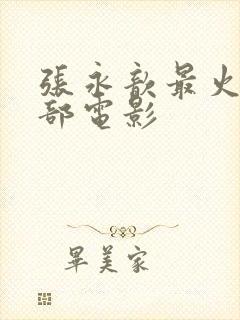 張永歆最火
部電影
畢美家